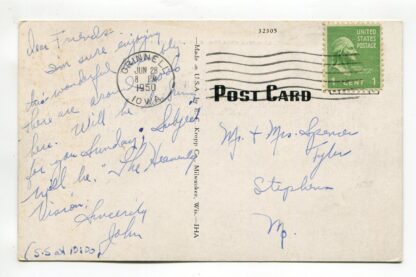 Dear Friends:
I'm sure enjoying
this wonderful
there are
here. Will be
for you Sunday. Subject
will be, "The Heavenly
Vision."
Sincerely
John
(S.S. at 10:00)
GRINNELL
JUN 28
8 PM
1950
IOWA
Made in U.S.A. by E. C. Kropp Co., Milwaukee, Wis.—IHA
32305
UNITED STATES
POSTAGE
1 CENT 1
POST CARD
Mr. & Mrs. Spencer
Tyler
Stephens
Mo.